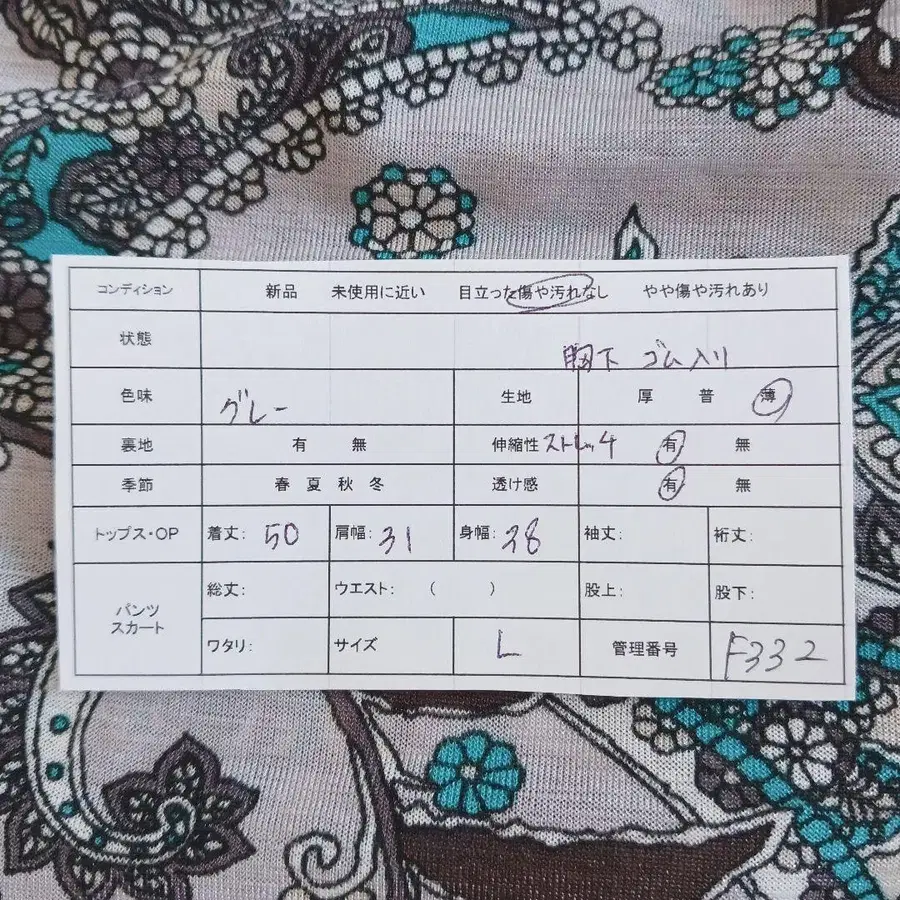 コンディション 新品 未使用に近い 目立った傷や汚れなし やや傷や汚れあり
状態 胸下 ゴム入り
色味 グレー 生地 厚 普 薄
裏地 有 無 伸縮性 ストレッチ 有 無
季節 春 夏 秋 冬 透け感 有 無
トップス・OP 着丈: 50 肩幅: 31 身幅: 38 袖丈: 裄丈:
パンツ スカート 総丈: ウエスト: ( ) 股上: 股下:
ワタリ: サイズ L 管理番号 F332